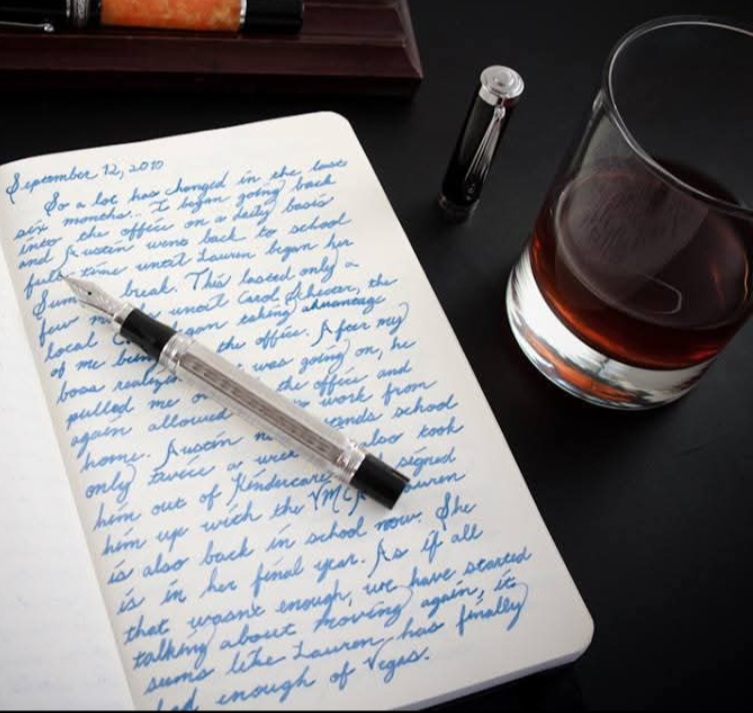 September 12, 2010
So a lot has changed in the last
six months.. I began going back
into the office on a daily basis
and Austin went back to school
full time until Lauren began her
Sum break. This lasted only a
few m until Carol, the
local gan taking advantage
of me bein the office. After my
boss realiz was going on, he
pulled me o the office and
again allowed work from
home. Austin n tends school
only twice a wee also took
him out of Kindercare signed
him up with the YMCA Lauren
is also back in school now. She
is in her final year. As if all
that wasn't enough, we have started
talking about moving again, it
sums like Lauren has finally
had enough of Vegas.